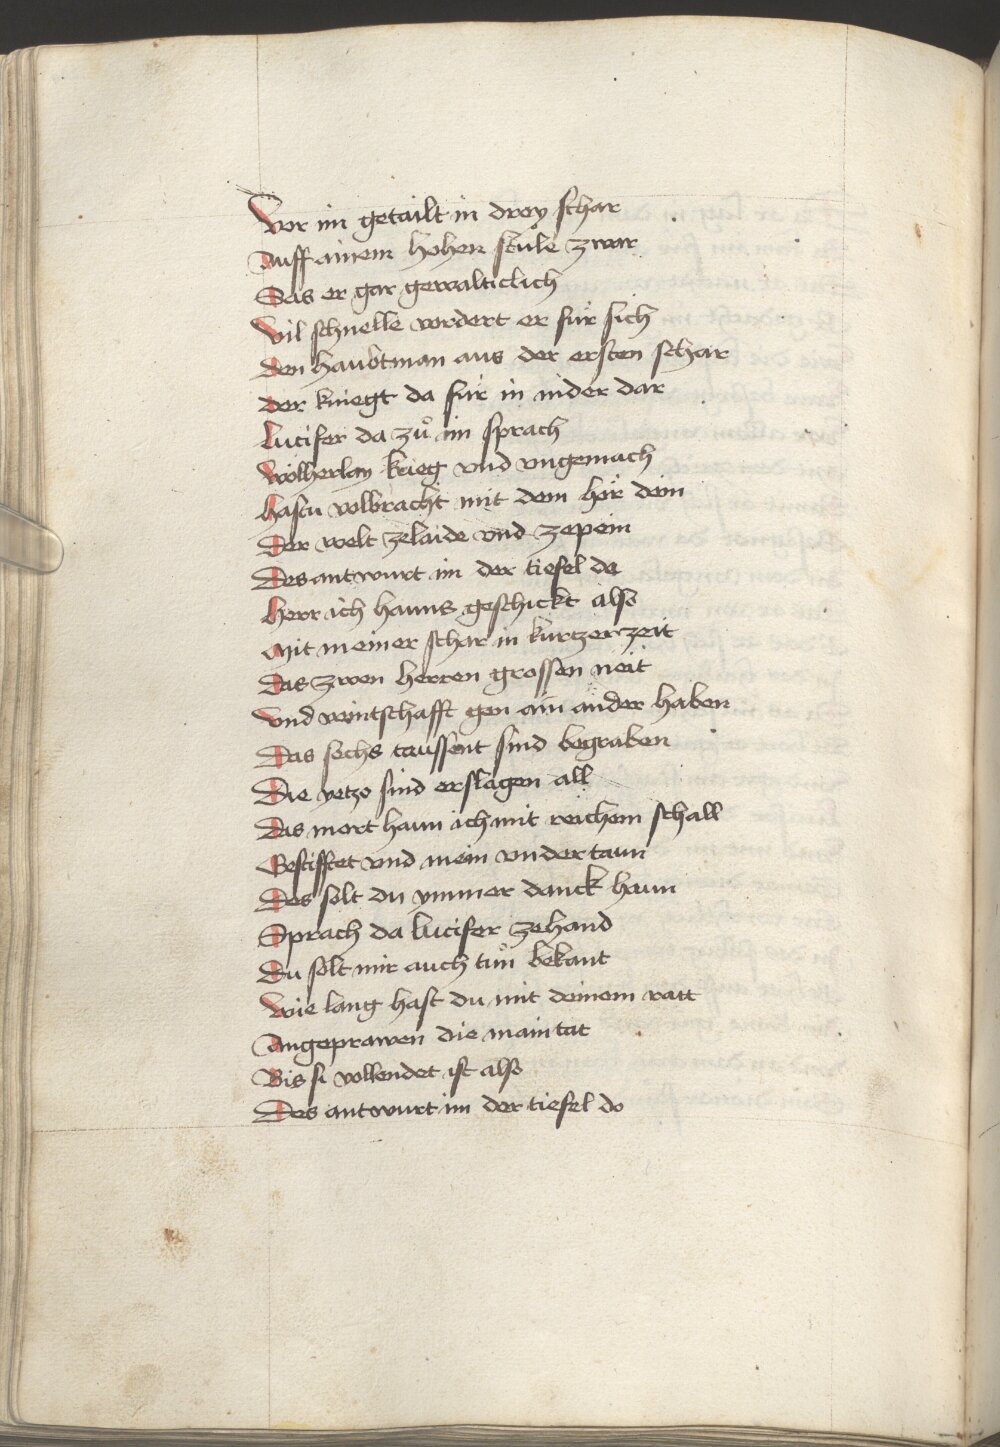 Vor im getailt in drey schar
Auff ainem hohen stůle zwar
Sas er gar gewalticlich
Vil schnelle vordert er für sich
Den haubtman aus der ersten schar
Der kniegt da für in nider dar
Lucifer da zů im sprach
Wölherlay krieg vnd vngemach
Hastu volbracht mit dem hör dein
Der welt zelaide vnd zepein
Des antwurt im der tiefel da
Herr ich hanns geschickt also
Mit meiner schar in kurtzer zeit
Das zwen herren grossen neit
Vnd veintschafft gen ain ander haben
Das sechs taussent sind begraben
Die yetzo sind erslagen all
Das mort haun ich mit reichem schall
Gestifftet vnd mein vndertaun
Des solt du ymmer danck haun
Sprach da lucifer zehand
Du solt mir auch tůn bekant
Wie lang hast du mit deinem ratt
Angeprawen die maintat
Bis si vollendet ist also
Des antwurt im der tiefel do